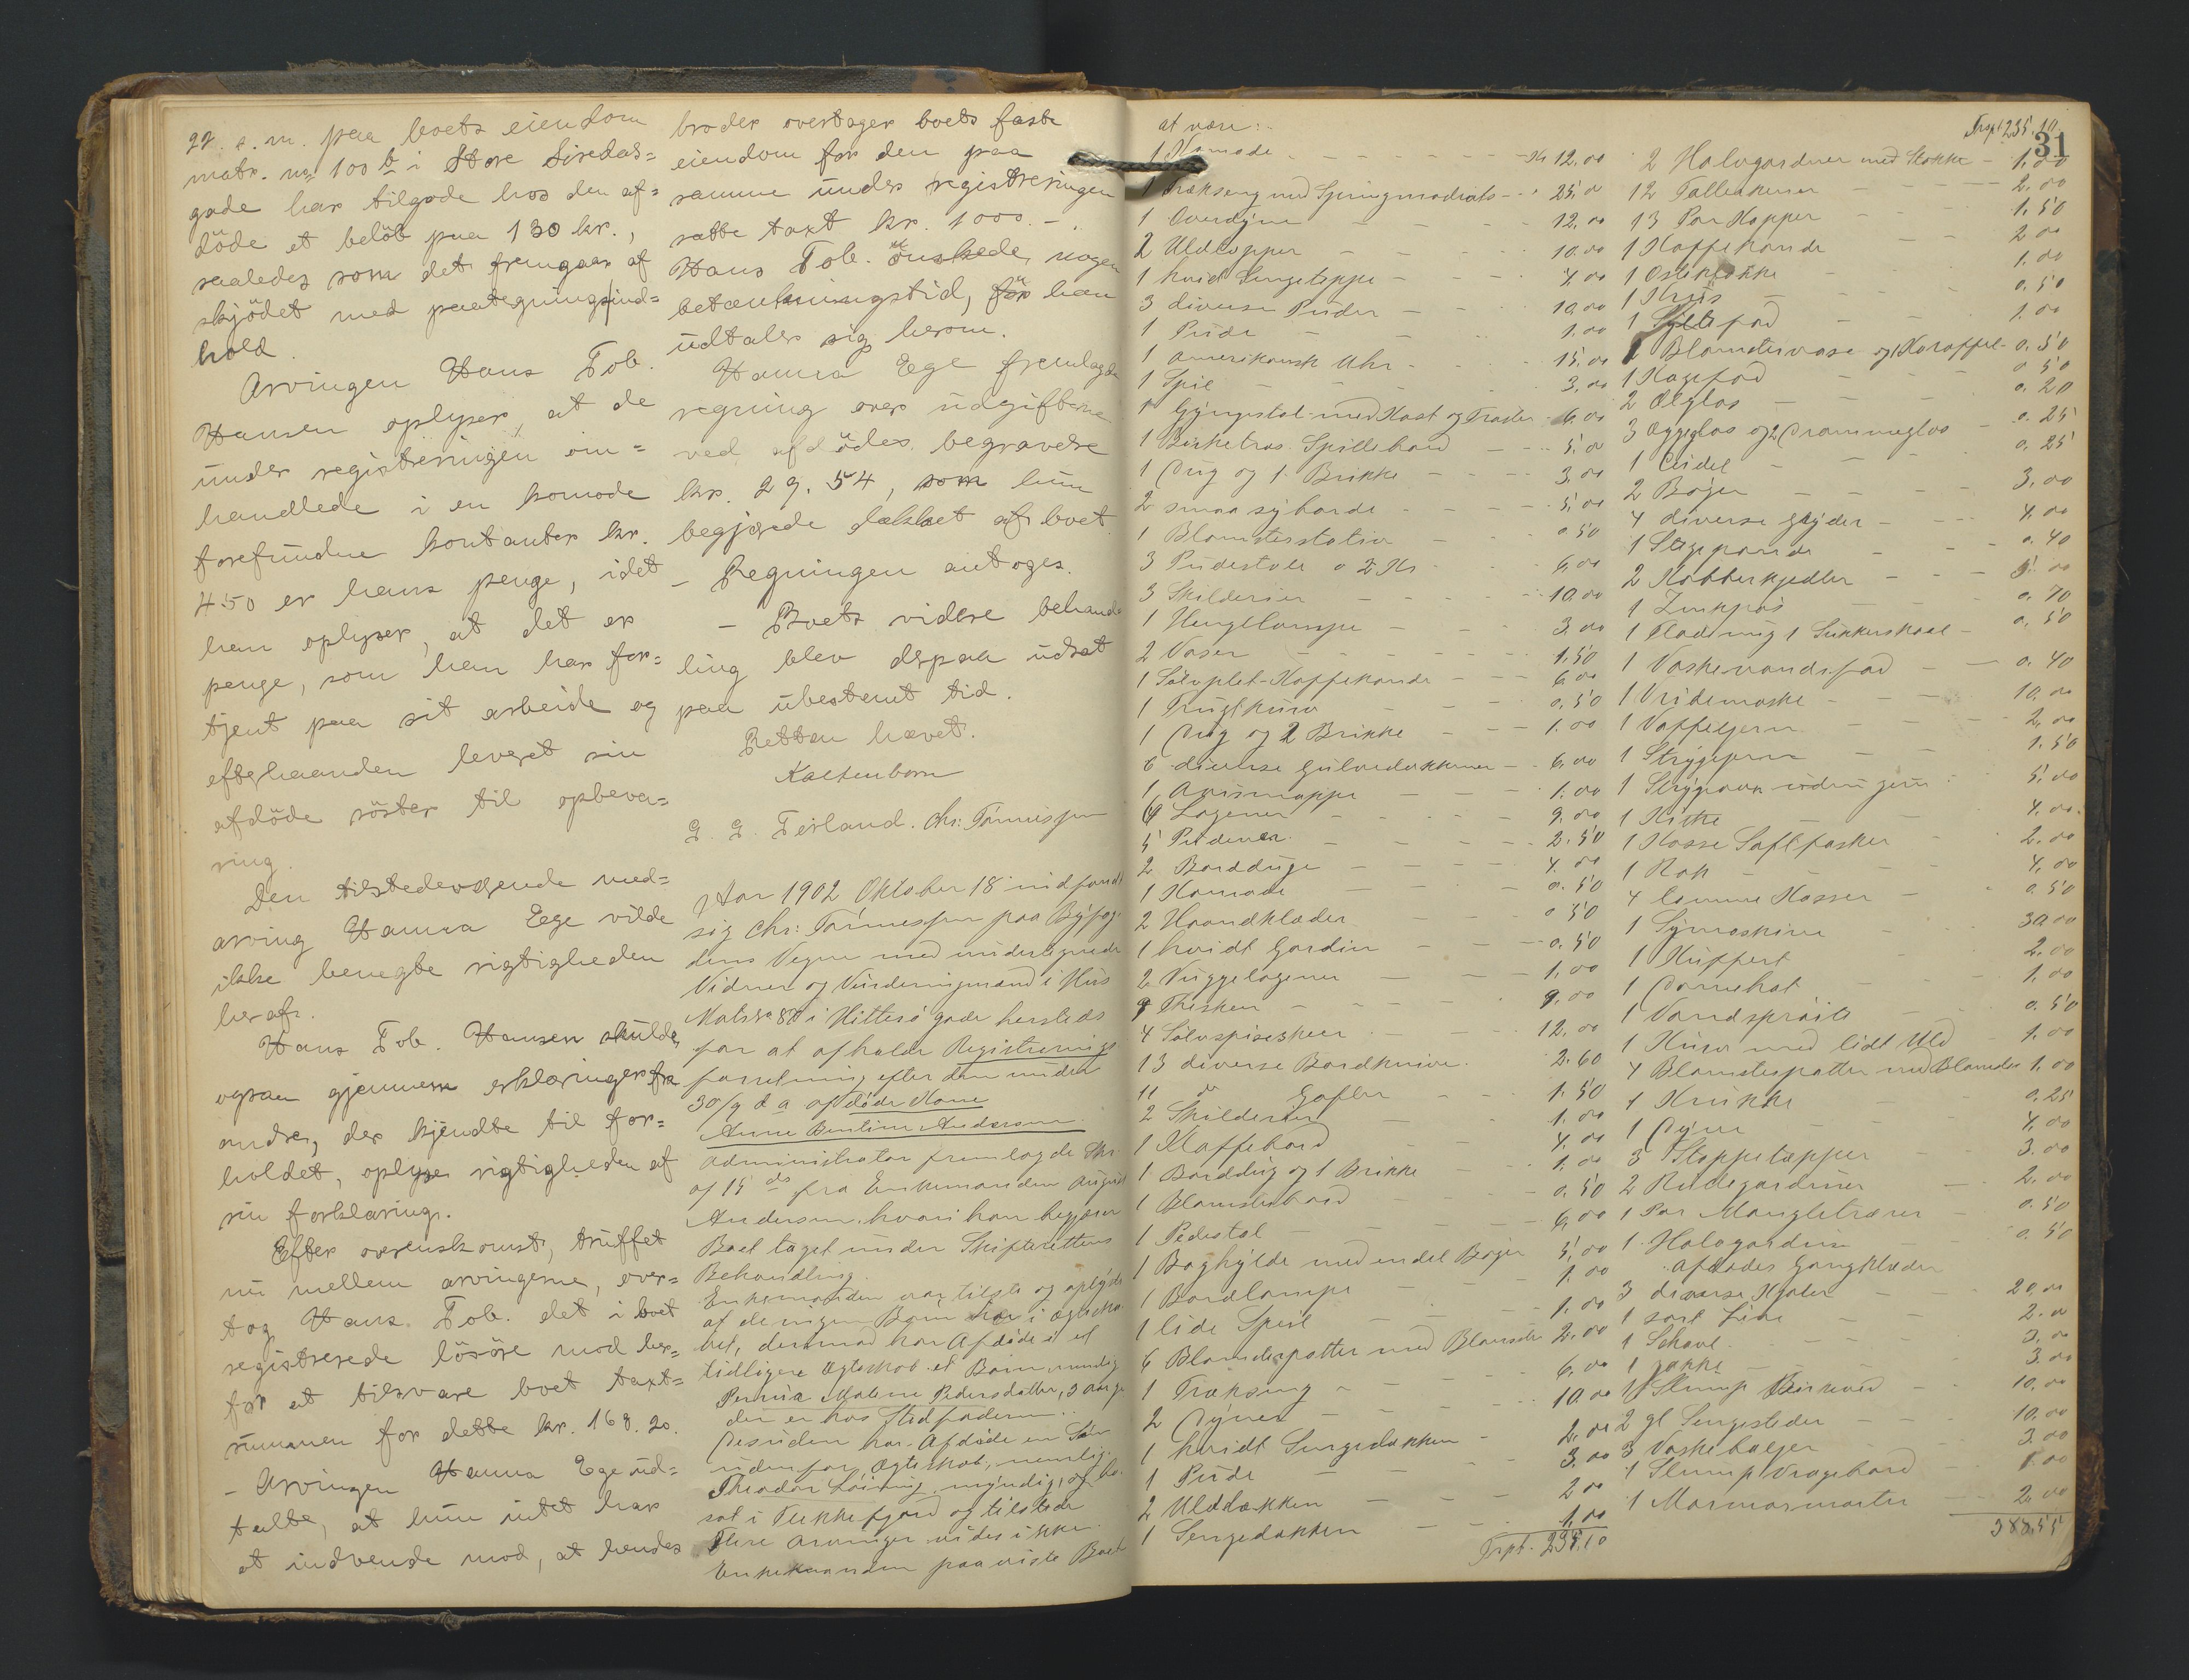 22. s. m. paa boets eiendom
matr. no 100 b i Store Siredas=
gade har tilgode hos den af=
døde et beløb paa 130 kr.,
saaledes som det fremgaar af
skjødet med paategning/ind=
hold.
Arvingen Hans Tob.
Hansen oplyser, at de
under registreringen om=
handlede i en komode
forefundne kontanter kr.
450 er hans penge, idet
han oplyser, at det er
penge, som han har for=
tjent paa sit arbeide og
efterhaanden leveret sin
afdøde søster til opbeva=
ring.
Den tilstedeværende med=
arving Hanna Ege vilde
ikke benegte rigtigheden
heraf.
Hans Tob. Hansen skulde
ogsaa gjennem erklæringer fra
andre, der kjendte til for=
holdet, oplyse rigtigheden af
sin forklaring.
Efter overenskomst, truffet
nu mellem arvingerne, over=
tog Hans Tob. det i boet
registrerede løsøre mod her=
for at tilsvare boet taxt=
summen for dette kr. 168.20.
- Arvingen Hanna Ege ud=
talte, at hun intet har
at indvende mod, at hendes
broder overtager boets faste
eiendom for den paa
samme under registreringen
satte taxt kr. 1000.-
Hans Tob. ønskede nogen
betænkningstid, før han
udtaler sig herom.
Hanna Ege fremlagde
regning over udgifterne
ved afdødes begravelse
kr. 29.54, som hun
begjærede dækket af boet.
- Regningen antoges.
- Boets videre behand
ling blev derpaa udsat
paa ubestemt tid.
Retten hævet.
Kaltenborn
G. G. Feiland. Chr: Tønnessen
Aar 1902 Oktober 18 indfandt
sig Chr: Tønnessen paa Byfog-
dens Vegne med undertegnede
Vidner og Vurderingsmænd i Hus
Matr No 80 i Hitterø gade hersteds
for at afholde Registrerings
forretning efter den under
30/9 d a afdøde Kone
Anne Bentine Andersen
Administrator fremlagde Skr.
af 15 ds fra Enkemanden August
Andersen, hvori han begjærer
Boet taget under Skifterettens
Behandling.
Enkemanden var tilste og oplyste
at de ingen Børn har i Ægteska-
bet, derimod har Afdøde i et
tidligere Ægteskab et Barn, nemlig
Pernia Malene Pedersdatter, 3 aar gl
der er hos Stedfaderen.
Desuden har Afdøde en Søn
udenfor Ægteskab, nemlig
Theodor Løining, myndig, og bo-
sat i Flekkefjord og tilstede
Flere Arvinger vides ikke.
Enkemanden paaviste Boet
at være:
1 Komode - Kr 12.00
1 Trækseng med Springmadrats - 25.00
1 Overdyne - 12.00
2 Uldtepper - 10.00
1 hvid Sengeteppe - 4.00
3 diverse Puder - 10.00
1 Pude - 1.00
1 amerikansk Uhr - 15.00
1 Speil - 3.00
1 Gyngestol med Kast og Træder - 6.00
1 Birketræs Spillebord - 5.00
1 Dug og 1 Brikke - 3.00
2 smaa syborde - 5.00
1 Blomsterstativ - 0.50
3 Pudestole a 2 Kr - 6.00
3 Skilderier - 10.00
1 Hengelampe - 3.00
2 Vaser - 1.50
1 Sølvplet-Kaffekande - 6.00
1 Frugtkurv - 0.50
1 Dug og 2 Brikke - 1.00
6 diverse Gulvedækkener - 6.00
1 Avismappe - 1.00
9 Lagener - 9.00
5 Pudevar - 2.50
2 Bordduge - 4.00
1 Komode - 0.50
2 Haandklæder - 0.50
1 hvidt Gardin - 0.50
2 Vuggelagener - 1.00
9 Theskeer - 9.00
4 Sølvspiseskeer - 12.00
13 diverse Bordknive - 2.60
11 do Gafler - 1.50
2 Skilderier - 1.00
1 Kaffebord - 4.00
1 Borddug og 1 Brikke - 1.00
1 Blomsterbord - 0.50
1 Pedestal - 6.00
1 Boghylde med endel Bøger 5.00
1 Bordlampe - 1.00
1 lide Speil - 1.00
6 Blomsterpotter med Blomster 2.00
1 Trækseng - 6.00
2 Dyner - 10.00
1 hvidt Sengedækken - 2.00
1 Pude - 3.00
2 Ulddækken - 2.00
1 Sengedækken - 1.00
Trspt. 235.10
Trspt 235.10
31
2 Halvgardiner med Stokke - 1.00
12 Tallerkener - 2.00
13 Par Kopper - 1.50
1 Kaffekande - 2.00
1 Osteklokke - 1.00
1 Krus - 0.50
1 Syltefad - 1.00
1 Blomstervase og 1 Karaffel - 0.50
1 Kagefad - 0.50
2 Ølglas - 0.20
3 Æggeglas og 2 Drammeglas - 0.25
1 Seidel - 0.25
2 Bøger - 3.00
4 diverse Gryder - 4.00
1 Stegepande - 0.40
2 Kobberkjedler - 5.00
1 Zinkpøs - 0.70
1 Flødemug 1 Sukkerskaal - 0.50
1 Vaskevandsfad - 0.40
1 Vridemaske - 10.00
1 Vaffeljern - 2.00
1 Strygejern - 1.50
1 Strygeovn uden jern - 5.00
1 Kiste - 4.00
1 Kasse Saftflasker - 2.00
1 Rok - 4.00
4 tomme Kasser - 0.50
1 Symaskine - 30.00
1 Kuffert - 2.00
1 Damehat - 1.00
1 Vandsprøite - 0.50
1 Kurv med lidt Uld - 1.00
4 Blomsterpotter med Blomster 1.00
1 Krukke - 0.25
1 Dyne - 4.00
3 Stoppetepper - 3.00
2 Rullegardiner - 2.00
1 Par Mangletræer - 0.50
1 Halvgardin - 0.50
Afdødes Gangklæder
3 diverse Kjoler - 20.00
1 sort Liv - 2.00
1 Schavl - 3.00
1 Jakke - 3.00
1 Slump Birkeved - 10.00
2 gl Sengesteder - 10.00
3 Vaskebaljer - 3.00
1 Slump Vragebord - 1.00
1 Marmormorter - 2.00
388.55